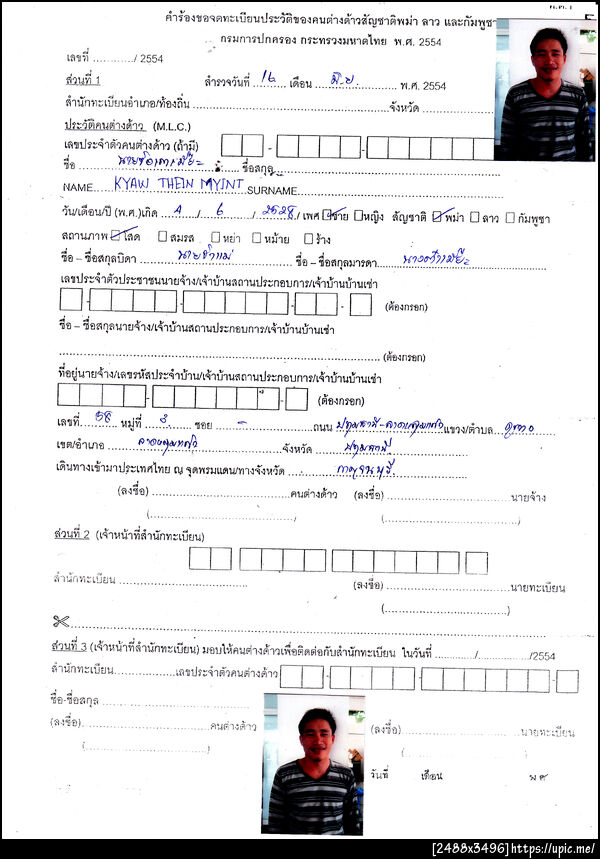 คำร้องขอจดทะเบียนประวัติของคนต่างด้าวสัญชาติพม่า ลาว และกัมพูชา
กรมการปกครอง กระทรวงมหาดไทย พ.ศ. 2554
เลขที่ ............/ 2554
ส่วนที่ 1 สำรวจวันที่ 16 เดือน มิ.ย. พ.ศ. 2554
สำนักทะเบียนอำเภอ/ท้องถิ่น ........ จังหวัด
ประวัติคนต่างด้าว (M.L.C.)
เลขประจำตัวคนต่างด้าว (ถ้ามี)
ชื่อ ........ ชื่อสกุล
NAME...... KYAW THEIN MYINT SURNAME
วัน/เดือน/ปี (พ.ศ.)เกิด 4 / 6 / 2528 / เพศ ชาย หญิง สัญชาติ พม่า ลาว กัมพูชา
สถานภาพ โสด สมรส หย่า หม้าย ร้าง
ชื่อ – ชื่อสกุลบิดา ........ ชื่อ – ชื่อสกุลมารดา
เลขประจำตัวประชาชนนายจ้าง/เจ้าบ้านสถานประกอบการ/เจ้าบ้านบ้านเช่า
(ต้องกรอก)
ชื่อ – ชื่อสกุลนายจ้าง/เจ้าบ้านสถานประกอบการ/เจ้าบ้านบ้านเช่า
(ต้องกรอก)
ที่อยู่นายจ้าง/เลขรหัสประจำบ้าน/เจ้าบ้านสถานประกอบการ/เจ้าบ้านบ้านเช่า
(ต้องกรอก)
เลขที่ 58 หมู่ที่ 3 ซอย - ถนน ปทุมธานี-ลาดหลุมแก้ว แขวง/ตำบล คูขวาง
เขต/อำเภอ ลาดหลุมแก้ว จังหวัด ปทุมธานี
เดินทางเข้ามาประเทศไทย ณ จุดพรมแดน/ทางจังหวัด กาญจนบุรี
(ลงชื่อ) ........ คนต่างด้าว (ลงชื่อ) ........ นายจ้าง
ส่วนที่ 2 (เจ้าหน้าที่สำนักทะเบียน)
สำนักทะเบียน ........ (ลงชื่อ) ........ นายทะเบียน
ส่วนที่ 3 (เจ้าหน้าที่สำนักทะเบียน) มอบให้คนต่างด้าวเพื่อติดต่อกับสำนักทะเบียน ในวันที่ ........./........../2554
สำนักทะเบียน........ เลขประจำตัวคนต่างด้าว
ชื่อ-ชื่อสกุล
(ลงชื่อ) ........ คนต่างด้าว (ลงชื่อ) ........ นายทะเบียน
วันที่ เดือน พ ศ
[2488x3496]https://upic.me/